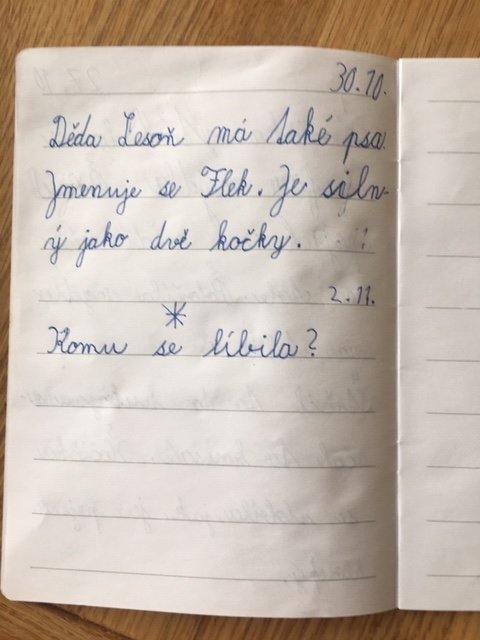 30.10.
Děda Lesoň má také psa.
Jmenuje se Flek. Je siln-
ý jako dvě kočky.
2.11.
Komu se líbila?